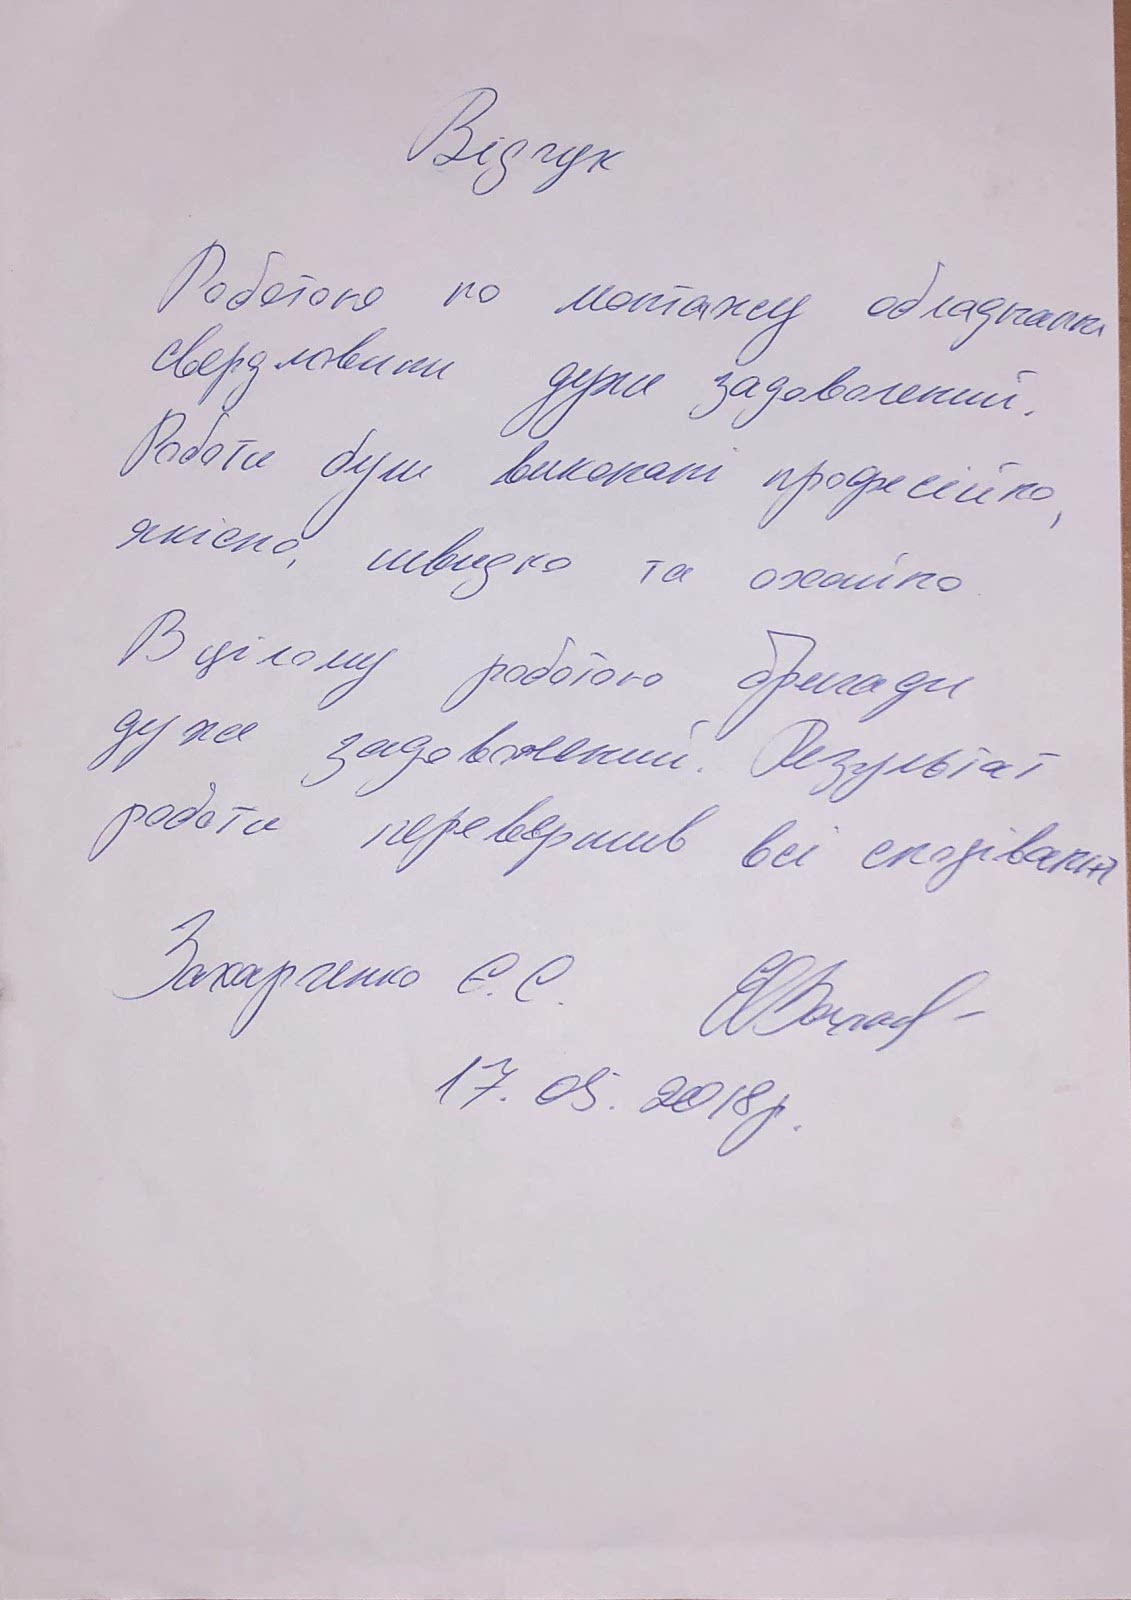 Відгук
Роботою по монтажу обладнання
свердловини дуже задоволений.
Роботи були виконані професійно,
якісно, швидко та охайно
В цілому роботою бригади
дуже задоволений. Результат
роботи перевершив всі сподівання
Захарченко Є.С.
17.05.2018р.